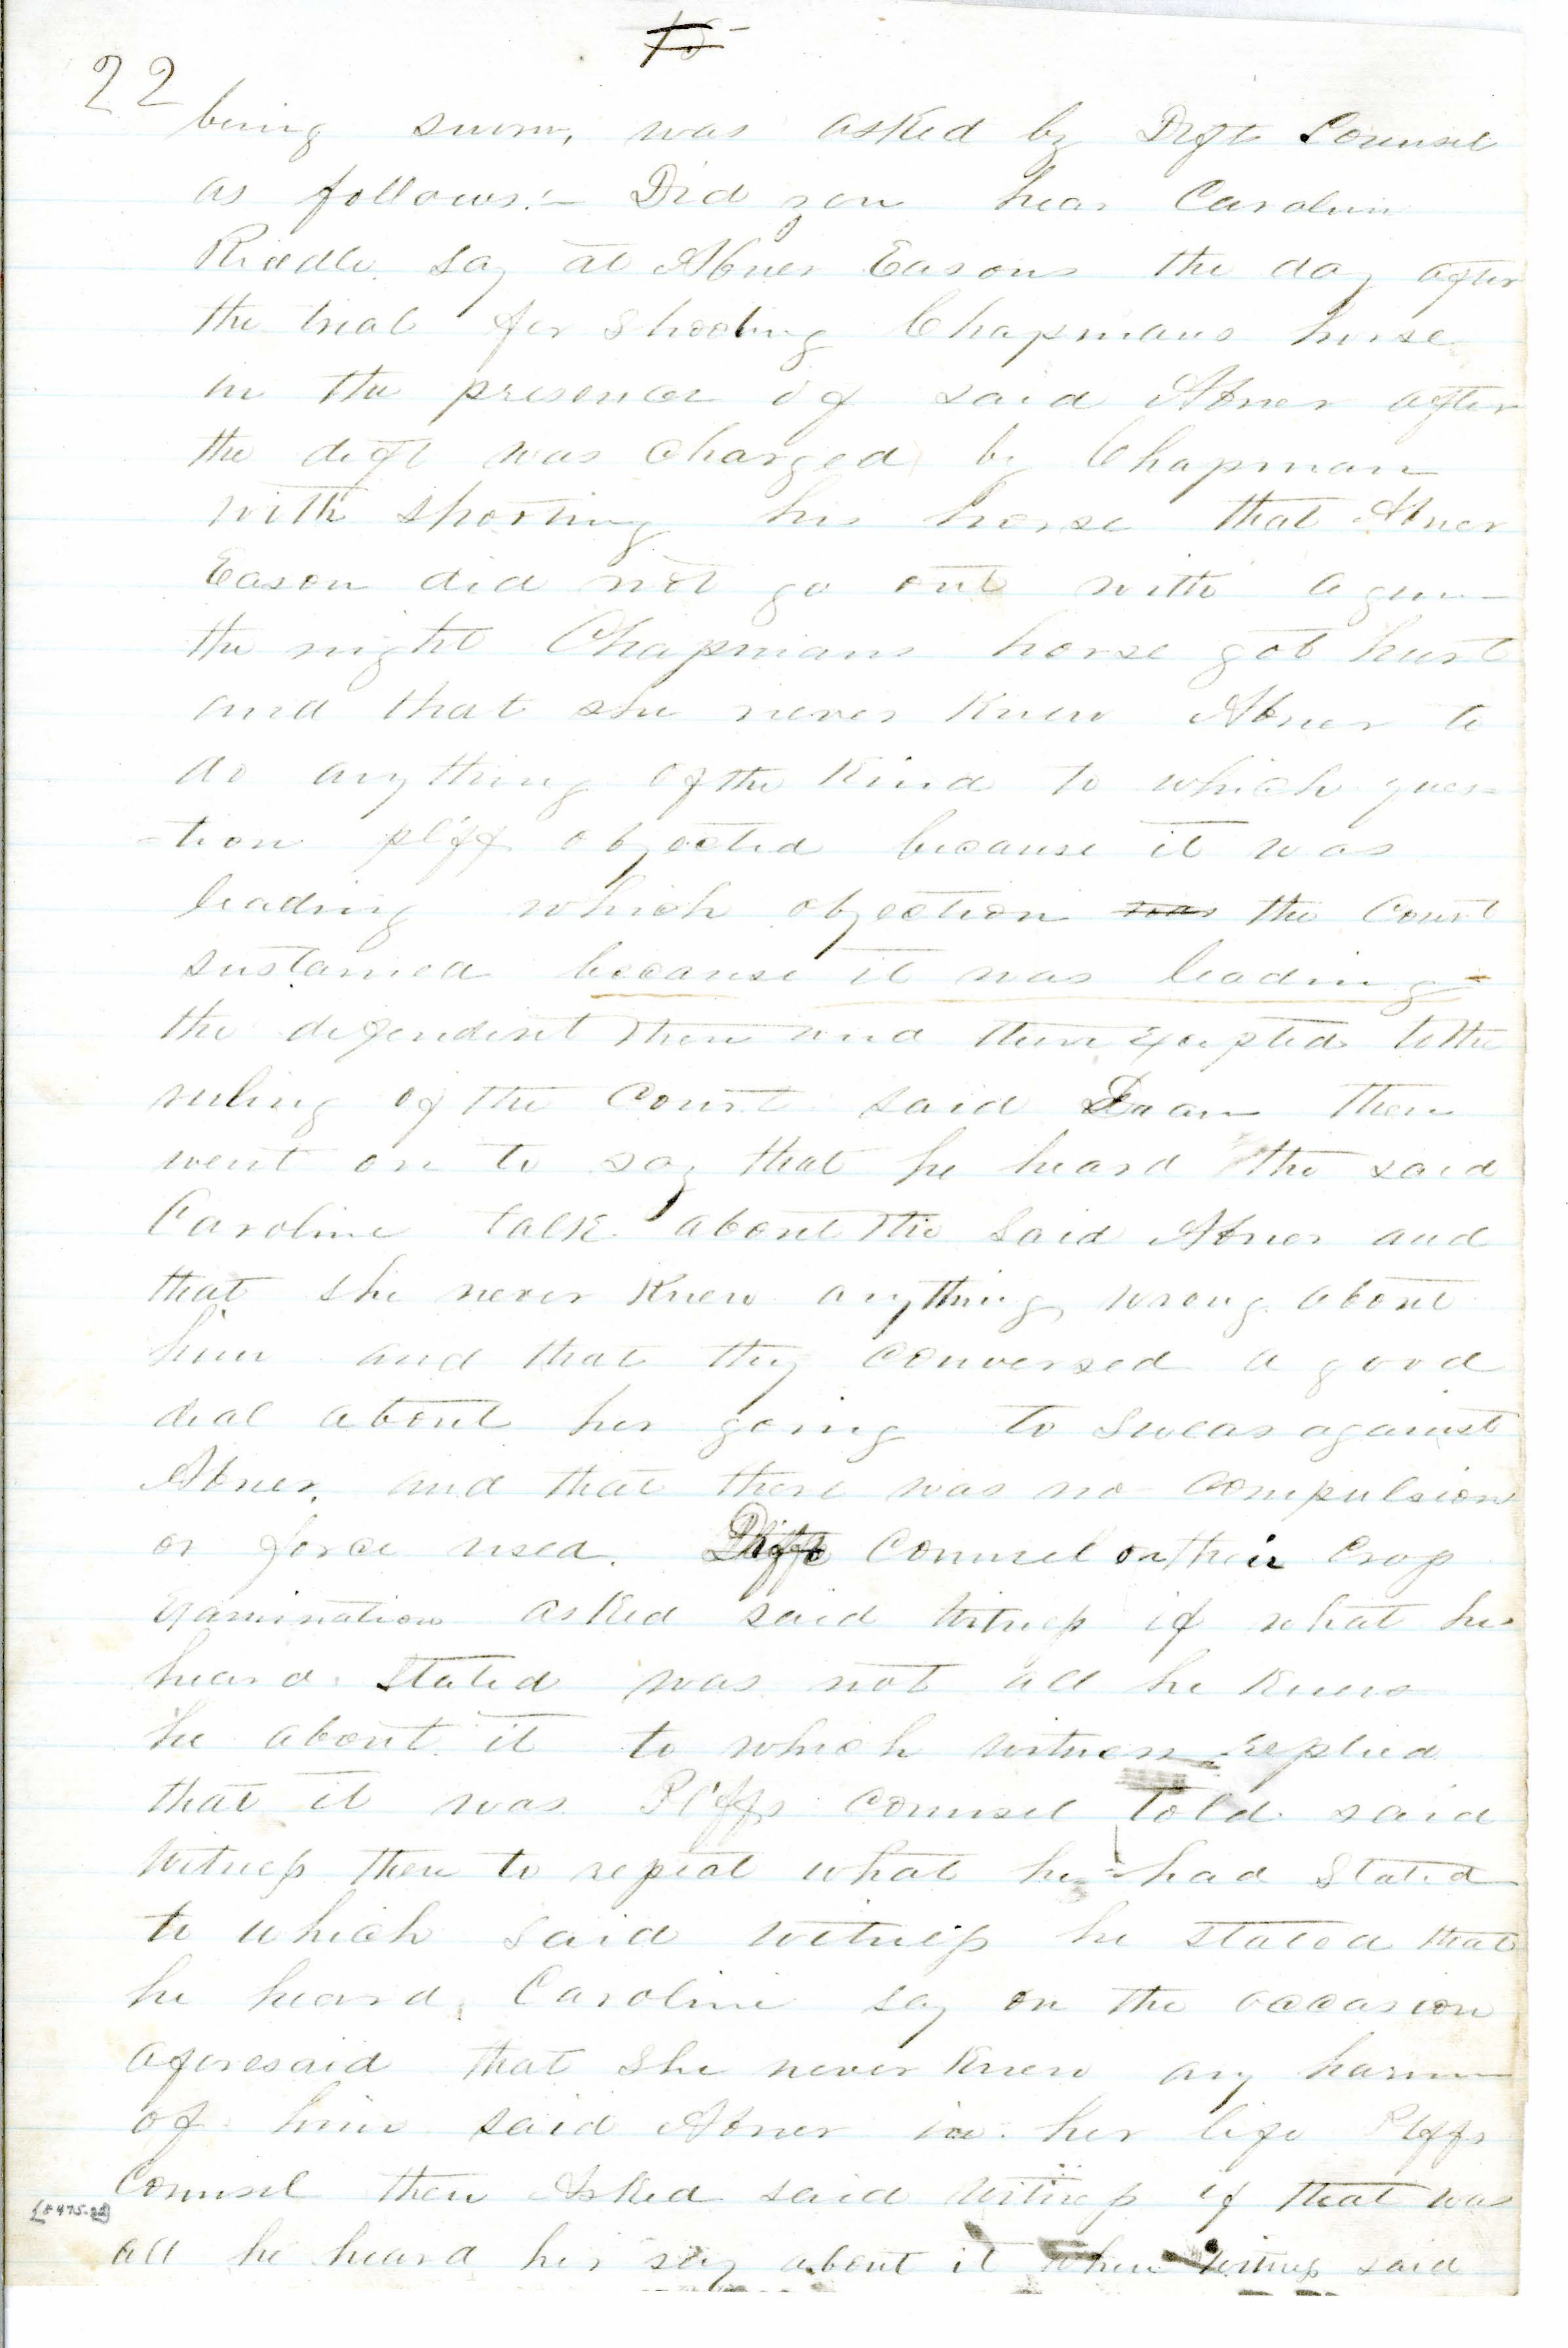 22
being sworn, was asked by Deft Counsel
as follows:- Did you hear Caroline
Riddle say at Abner Easons the day after
the trial for shooting Chapmans horse
in the presence of said Abner after
the deft was charged by Chapman
with shooting his horse that Abner
Eason did not go out with a gun
the night Chapmans horse got hurt
and that she never knew Abner to
do anything of the kind to which ques-
-tion pl'ff objected because it was
leading which objection was the Court
sustained because it was leading
the defendent then and there excepted to the
ruling of the Court said Dean then
went on to say that he heard the said
Caroline talk about the said Abner and
that she never knew anything wrong about
him and that they conversed a good
deal about her going to swear against
Abner, and that there was no compulsion
or force used. Counsel on their cross
examination asked said witness if what he
heard stated was not all he knew
he about it to which witness replied
that it was Pl'ffs counsel told said
witness then to repeat what he had stated
to which said witness he stated that
he heard Caroline say on the occasion
aforesaid that she never knew any harm
of him said Abner in her life Plffs
Counsel then asked said witness if that was
all he heard her say about it when witness said